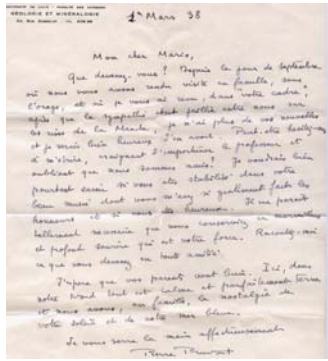 UNIVERSITÉ DE LILLE - FACULTÉ DES SCIENCES
GÉOLOGIE ET MINÉRALOGIE
1er Mars 38
Mon cher Marco,
Que devenez-vous ? Depuis le jour de septembre
où nous vous avons rendu visite en famille, sous
l'orage, et où je vous ai revu, dans votre cadre,
après que la sympathie était entre nous sur
les rives de la je n'ai plus de vos nouvelles
et je serais bien heureux d'en avoir. Peut-être hésitez-vous
à m'écrire, craignant d'importuner le professeur et
oubliant que nous sommes amis ? Je voudrais bien
pourtant savoir si vous êtes dans votre
beau dont vous m'avez si gentiment fait les
honneurs et si vous êtes heureux. Il me paraît
tellement que vous conserviez ce merveilleux
et profond sourire qui est votre force. Racontez-moi
ce que vous devenez en toute amitié.
J'espère que vos parents vont bien. Ici, dans
notre Nord tout est calme et parfaitement terne
et nous avons, en famille, la nostalgie de
votre soleil et de votre mer bleue.
Je vous serre la main affectueusement
Pierre